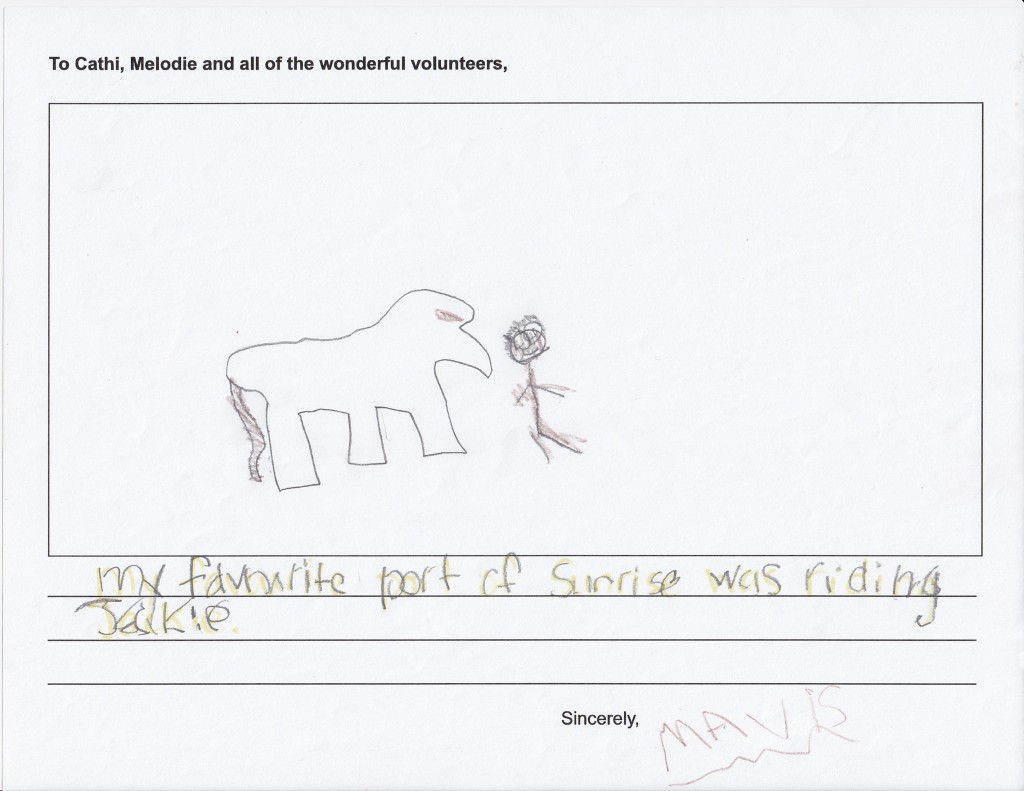 To Cathi, Melodie and all of the wonderful volunteers,
my favourite part of Sunrise was riding
Jackie.
Sincerely,
MAVIS